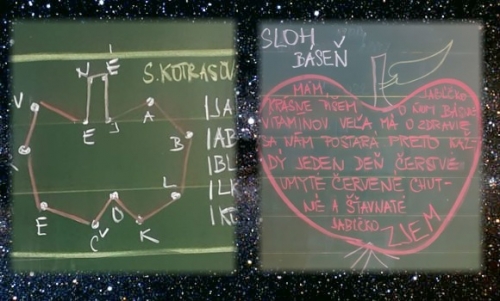 N E
S. KOTRASOV
V
A
E J
|JA
B
|AB
|BL
L
|LK
E
O
|K
Č K
SLOH
BÁSEŇ
MÁM, JABĹČKO
KRÁSNE PIŠEM O ŇOM BÁSNE
VITAMÍNOV VEĽA MÁ O ZDRAVIE
SA NÁM POSTARÁ PRETO KAŽ-
DÝ JEDEN DEŇ ČERSTVÉ
UMYTÉ ČERVENÉ CHUT-
NÉ A ŠŤAVNATÉ
JABĹČKO
ZJEM